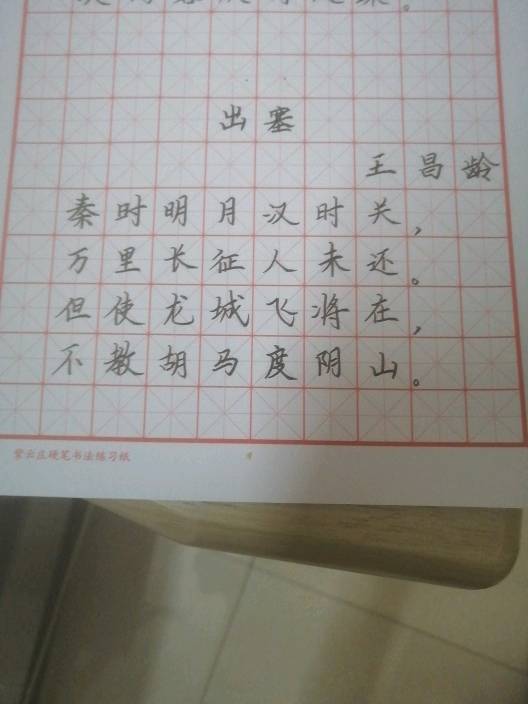 出塞
王昌龄
秦时明月汉时关，
万里长征人未还。
但使龙城飞将在，
不教胡马度阴山。
紫云庄硬笔书法练习纸